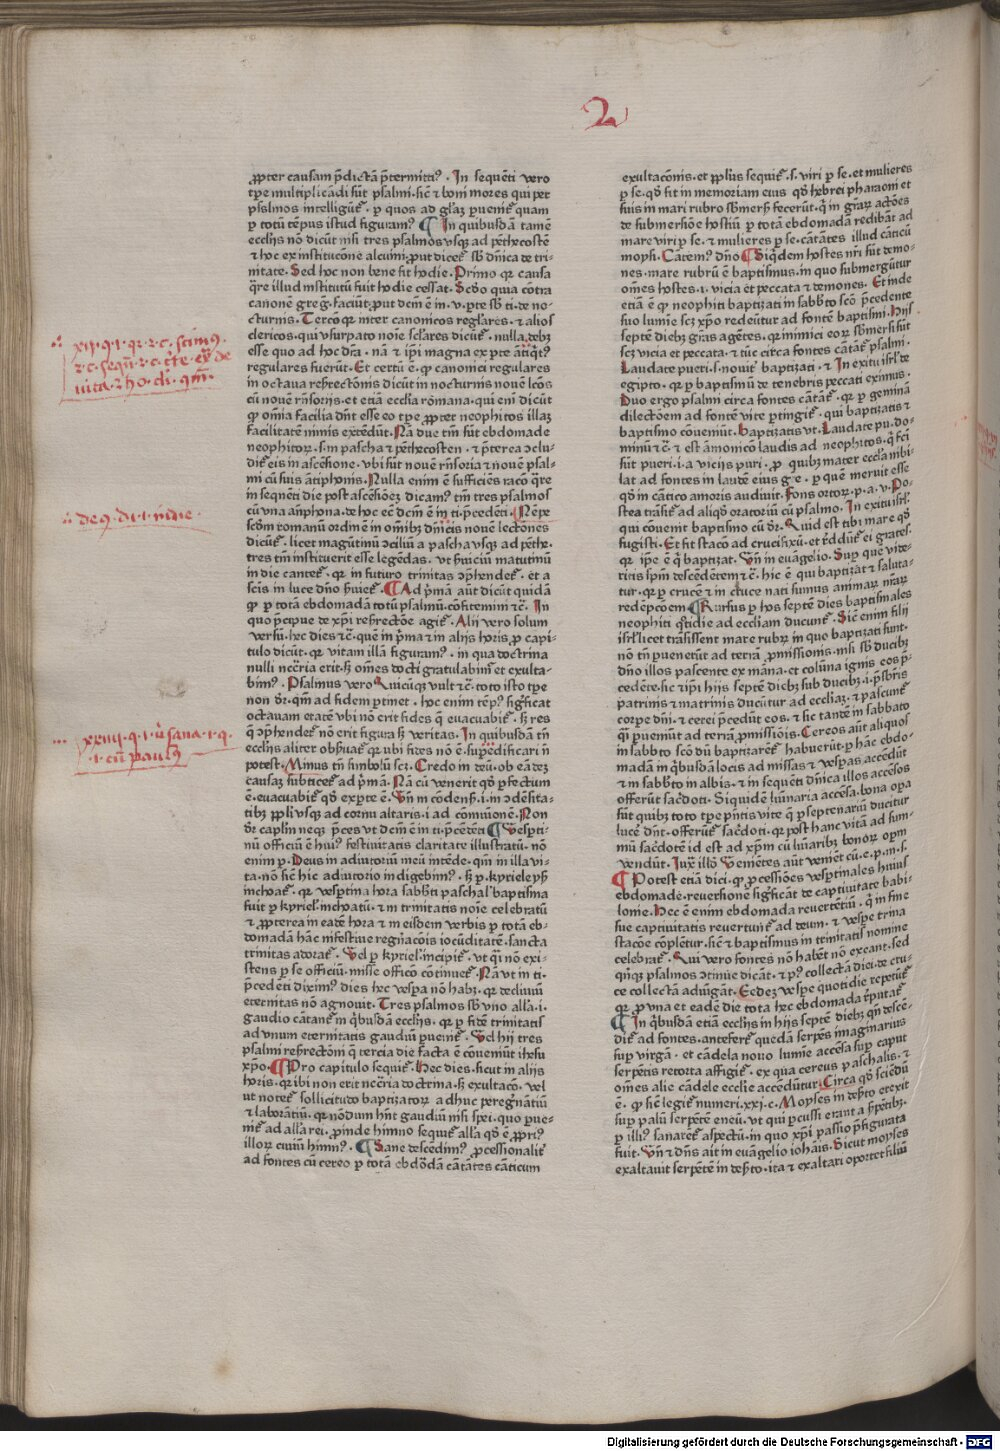 2
ꝓpter causam p̄dictā p̄termittiꝰ. In sequēti vero
tꝑe multiplicādi sūt psalmi. sic̄ ⁊ boni mores qui per
psalmos intelligūt̄. ꝑ quos ad głaꝫ ꝑueniēt̄ quam
ꝑ totū tēpus istud figuramꝰ. ¶ In quibusdā tamē
ecclijs nō dicūt̄ nisi tres psalmos vsqꝫ ad pēthecostē
⁊ hoc ex institucōne alcuini. ꝓut dicet̄ sb̄ dn̄ica de tri-
nitate. Sed hoc non bene fit hodie. Primo qꝛ causa
q̄re illud institutū fuit hodie cessat. Scd̄o quia cōtra
canonē greg̣. faciūt. ꝓut dc̄m ē in. v. ꝑte sb̄ ti. de no-
cturnis. Tercō qꝛ inter canonicos reglares. ⁊ alios
clericos. qui vsurpato noīe sclares dicūt̄. nulla debꝫ
esse quo ad hoc dr̄a. nā ⁊ ip̄i magna ex ꝑte āti᷒qt᷒
regulares fuerūt. Et certū ē. ꝙ canonici regulares
in octaua resurrectōnis dicūt in nocturnis nouē lc̄ōs
cū nouē rn̄sorijs. et etiā ecclia romana. qui enī dicūt
ꝙ om̄ia facilia dn̄t esse eo tꝑe ꝓpter neophitos illaꝫ
facilitatē nimis extēdūt. Nā due tm̄ sūt ebdomade
neophitoꝝ. s. in pascha ⁊ pēthecosten. ⁊ p̄terea ꝯclu-
dit̄ eis in ascēsione. vbi sūt nouē rn̄soria ⁊ nouē psal-
mi cū suis ātiphonis. Nulla enim ē sufficiēs racō q̄re
in sequēti die post ascēsionēꝫ dicamꝰ tm̄ tres psalmos
cū vna an̄phona. de hoc eē dc̄m ē in ti. p̄cedēti. Nēpe
scd̄m romanū ordinē in om̄ibꝫ dn̄icis nouē lectōnes
dicūt̄. licet magūtinū ꝯciliū a pascha vsqꝫ ad pēthe.
tres tm̄ instituerit esse legēdas. vt breuiū matutinū
in die cantet̄. qꝛ in futuro trinitas ꝯp̄hendet̄. et a
sc̄is in luce dn̄o seruiet̄. ¶ Ad p̄mā aūt dicūt quidā
ꝙ ꝑ totā ebdomadā totū psalmū. cōfitemini ⁊c̄. In
quo p̄cipue de xp̄i resurrectōe agit̄. Alij vero solum
versū. hec dies ⁊c̄. quē in p̄ma ⁊ in alijs horis ꝓ capi-
tulo dicūt. qꝛ vitam illā figuramꝰ. in qua doctrina
nulli neccia erit. sꝫ om̄es docti gratulabimꝰ et exulta-
bimꝰ. Psalmus vero Quicūqꝫ vult ⁊c̄. toto isto tꝑe
non dr̄. qm̄ ad fidem ꝑtinet. hoc enim tēpꝰ significat
octauam etatē vbi nō erit fides q̄ euacuabit̄. sꝫ res
q̄ ꝯp̄hendet̄. nō erit figura sꝫ veritas. In quibusdā tn̄
ecclijs aliter obseruat̄ qꝛ vbi fides nō ē. sup̄edificari n̄
potest. Minus tn̄ simbolū scꝫ. Credo in deū. ob eādeꝫ
causaꝫ subticet̄ ad p̄mā. Nā cū venerit qd̄ ꝑfectum
ē. euacuabit̄ qd̄ ex ꝑte ē. Vn̄ in cōdensꝭ. i. in ꝯdēsita-
tibꝫ ppli vsqꝫ ad cornu altaris. i. ad cōmunionē. Non
dr̄ caplīn neqꝫ p̄ces vt dc̄m ē in ti. p̄cedēti ¶ Vespti-
nū officiū ē huiꝰ festiuitatis claritate illustratū. nō
enim ꝑ. Deus in adiutoriū meū intēde. qm̄ in illa vi-
ta. nō sic̄ hic adiutorio indigebimꝰ. sꝫ ꝑ. kyriele ps̄
inchoat̄. qꝛ vesptina hora sabb̄ti paschał baptisma
fuit ꝑ kyriel inchoatū. ⁊ in trinitatis noīe celebratū
⁊ ꝓpterea in eadē hora ⁊ in eisdem verbis ꝑ totā eb-
domadā hāc infestiue regn̄acōis iocūditatē. sancta
trinitas adorat̄. Vel ꝑ kyriel. incipit̄. vt qͥ nō exi-
stens ꝑ se officiū. misse officō cōtinuet̄. Nā vt in ti.
p̄cedēti diximꝰ. dies hec vespa nō habꝫ. qꝛ decliuiū
eternitas nō agnouit. Tres psalmos sb̄ vno alla. i.
gaudio cātant̄ in qͥbusdā ecclijs. qꝛ ꝑ fidē trinitatis
ad vnum eternitatis gaudiū ꝑueniet̄. Vel hij tres
psalmi resurrectōni q̄ tercia die facta ē cōueniūt ihesu
xp̄o. ¶ Pro capitulo sequit̄. Hec dies. sicut in alijs
horis. qꝛ ibi non erit neccia doctrina. sꝫ exultacō. vel
ut notet̄ sollicitudo baptizatoꝝ adhuc peregrinātiū
⁊ laborātiū. qꝛ nōdum hn̄t gaudiū nisi spei. quo ꝑue-
niēt̄ ad alla rei. ꝓinde himno sequit̄ alla qd̄ ē ꝓpriꝰ
illoꝝ ciuiū himnꝰ. ¶ Sane descēdimꝰ ꝓcessionalit̄
ad fontes cū cereo ꝑ totā ebd̄odā cātātes cāticum
exultacōnis. et ppl̄us sequit̄. s. viri ꝑ se. et mulieres
ꝑ se. qd̄ fit in memoriam eius qd̄ hebrei pharaoni et
suis in mari rubro sb̄mersis fecerūt. qͥ in grāꝝ actōes
de submersiōe hostiū ꝑ totā ebdomadā redibāt ad
mare viri ꝑ se. ⁊ mulieres ꝑ se. cātātes illud cāticū
moysi. Cātemꝰ dn̄o ¶ Siqͥdem hostes nr̄i sūt demo-
nes. mare rubrū ē baptismus. in quo submergūtur
om̄es hostes. i. vicia et peccata ⁊ demones. Et inde
etiā ē ꝙ neophiti baptizati in sabb̄to scō p̄cedente
suo lumīe scꝫ xp̄o redeūtur ad fontē baptismi. Hijs
septē diebꝫ grās agētes. qꝛ inimici eoꝝ sb̄mersi sūt
scꝫ vicia et peccata. ⁊ tūc circa fontes cātāt̄ psalmi.
Laudate pueri. s. nouit̄ baptizati. ⁊ In exitu isrł de
egipto. qꝛ ꝑ baptismū de tenebris peccati eximus.
Duo ergo psalmi circa fontes cātāt̄. qꝛ ꝑ geminā
dilectōem ad fontē vite ꝑtingit̄. qui baptizatis ⁊
baptismo cōueniūt. Baptizatis vt. Laudate pu. do-
minū ⁊c̄. ⁊ est āmonicō laudis ad neophitos. qͥ fc̄i
sūt pueri. i. a vicijs puri. ꝓ quibꝫ mater ecclīa iubi-
lat ad fontes in laudē eius g̣e. ꝑ quē meruit esse
qd̄ in cātico amoris audiuit. Fons ortoꝝ. p. a. v. Po-
stea trāsit̄ ad aliqd̄ oratoriū cū psalmo. In exitu isrł.
qui cōuenit baptismo cū dr̄. Quid est tibi mare qd̄
fugisti. Et fit stacō ad crucifixū. et reddūt̄ ei grates.
qꝛ ip̄e ē qͥ baptizat. Vn̄ in euāgelio. Suꝑ quē vide-
ritis spm̄ descēdētem ⁊c̄. hic ē qui baptizat ⁊ saluta-
tur. qꝛ ꝑ crucē ⁊ in cruce nati sumus animaꝝ nr̄aꝝ
redēpcōem ¶ Rursus ꝑ hos septē dies baptismales
neophiti qͦtidie ad eccliam ducunt̄. Sic̄ enim filij
isrł licet trāsissent mare rubꝝ in quo baptizati sunt.
nō tn̄ ꝑuenetūt ad terrā ꝓmissionis. nisi sb̄ ducibꝫ
dn̄o illos pascente ex māna. et colūna ignis eos p̄-
cedēte. sic ⁊ ip̄i hijs septē diebꝫ sub ducibꝫ. i. p̄sbris
patrinis ⁊ matrinis ducūtur ad eccliaꝫ. ⁊ pascunt̄
corꝑe dn̄i. ⁊ cerei p̄cedūt eos. ⁊ sic tandē in sabbato
qͥ ꝑuemūt ad terrā ꝓmissiōis. Cereos aūt aliquos
in sabb̄to scō dū baptizarēt̄ habuerūt. ꝑ hāc ebdo-
madā in qͥbusdā locis ad missas ⁊ vesꝑas accēdūt
⁊ in sabb̄to in albis. ⁊ in sequēti dn̄ica illos accēsos
offerūt sac̄doti. Siquidē luminaria accēsa. bona oꝑa
sūt quibꝫ toto tꝑe p̄ntis vite q̄ ꝑ septenariū ducitur
lucē dn̄t. offerūt̄ sac̄doti. qꝛ post hanc vitā ad sum-
mū sac̄dotē id est ad xp̄m cū luminaribꝫ bonoꝝ oꝑm
vendūt. Iux̄ illd̄ Veniētes aūt veniēt cū. e. p. m. s.
¶ Potest etiā dici. ꝙ ꝓcessiōes vesꝑtinales huius
ebdomade. reuersionē significāt de captiuitate babi-
lonie. Hec ē enim ebdomada reuertētiū. qͥ in fine
sue captiuitatis reuertunt̄ ad deum. ⁊ vesꝑe trina
stacōe cōplētur. sic̄ ⁊ baptismus in trinitatis nomine
celebrat̄. Qui vero fontes nō habēt nō exeant. sed
qͥnqꝫ psalmos ꝯtinue dicāt. ⁊ pꝰ collectā dicēt de cru-
ce collectā adiūgāt. Eedeꝫ vesꝑe quotidie repetūt̄
qꝛ ꝓ vna et eadē die tota hec ebdomada reputat̄
¶ In qͥbusdā etiā ecclijs in hijs septē diebꝫ qn̄ descē-
dit̄ ad fontes. antefert̄ quedā serpēs imaginarius
suꝑ virgā. et cādela nouo lumīe accēsa suꝑ caput
serpētis retorta affigit̄. ex qua cereus paschalis. ⁊
om̄es alie cādele ecclie accēdūtur. Circa qd̄ sciēdū
ē. ꝙ sic̄ legit̄ numeri. xxi. c. Moyses in deserto erexit
suꝑ palū serpētē eneū. vt qui ꝑcussi erant a serpētibꝫ.
ꝑ illiꝰ sanarēt̄ aspectū. in quo xp̄i passio p̄figurata
fuit. Vn̄ ⁊ dn̄s ait in euāgelio iohānis. Sicut moyses
exaltauit serpētē in deserto. ita ⁊ exaltari oportet filiū
Digitalisierung gefördert durch die Deutsche Forschungsgemeinschaft - DFG